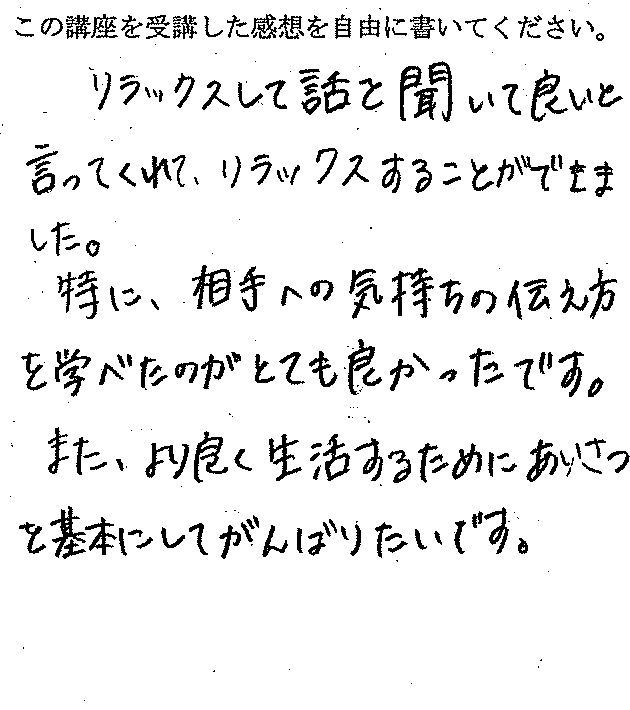 この講座を受講した感想を自由に書いてください。
リラックスして話を聞いて良いと
言ってくれて、リラックスすることができま
した。
特に、相手への気持ちの伝え方
を学べたのがとても良かったです。
また、より良く生活するためにあいさつ
を基本にしてがんばりたいです。